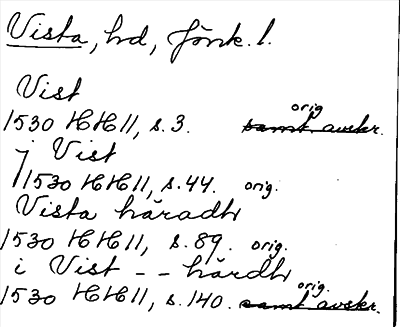 Vista, hd, Jönk. l.
Vist
1530 HH 11, s. 3. orig. samt avskr.
j Vist
1530 HH 11, s. 44. orig.
Vista häradh
1530 HH 11, s. 89. orig.
i Vist -- härdh
1530 HH 11, s. 140. orig. samt avskr.